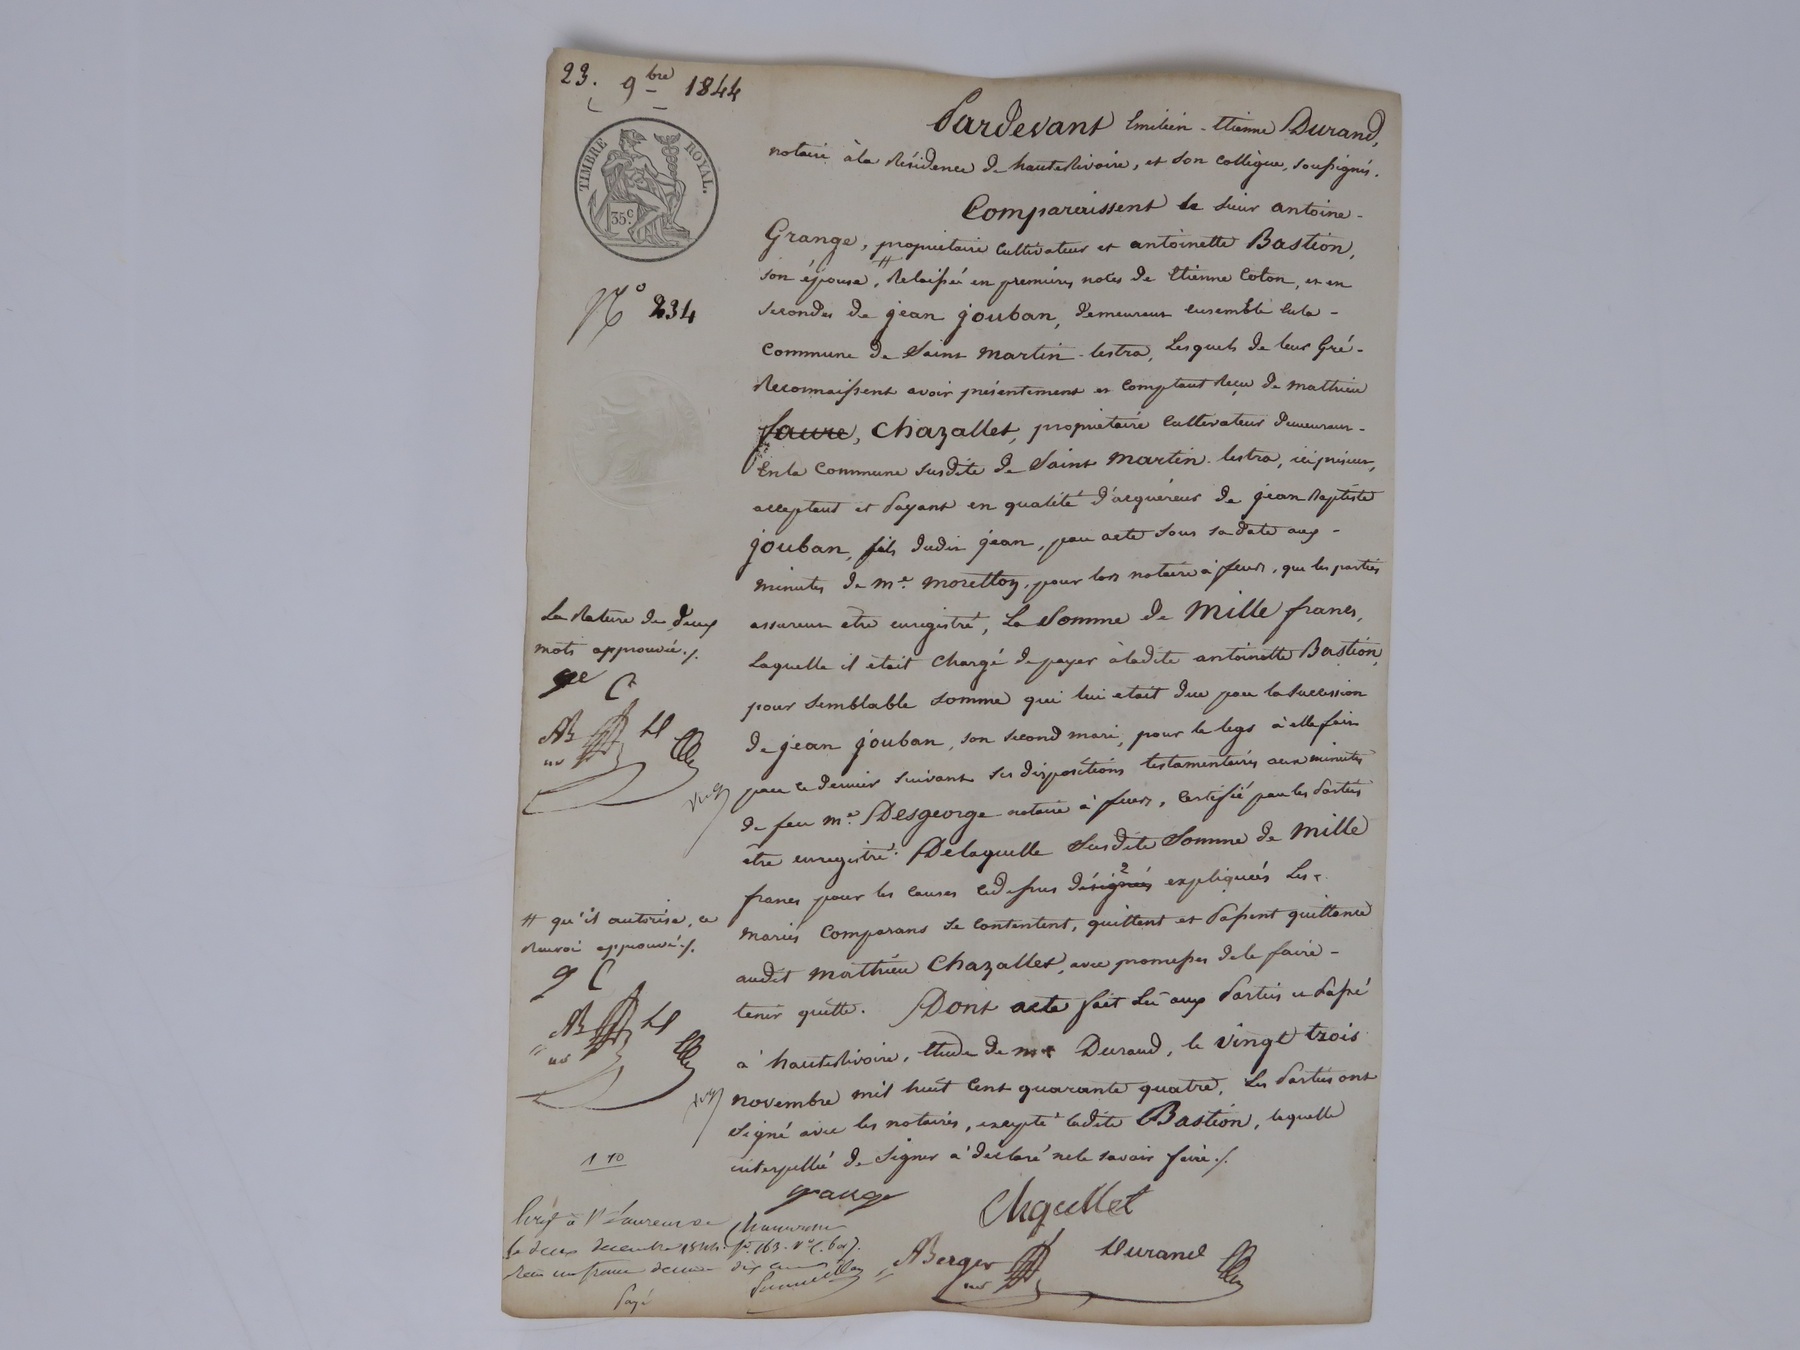 23. 9bre 1844
TIMBRE ROYAL.
35c
No 234
Pardevant Emilien-Etienne Durand,
notaire à la Résidence de hauteRivoire, et son collègue, soussignés.
Comparaissent le sieur antoine-
Grange, propriétaire cultivateur et antoinette Bastion,
son épouse, # Relaissée en premières noces de Etienne Coton, et en
secondes de jean jouban, demeurant ensemble en la-
commune de Saint martin-lestra, Lesquels de leur Gré-
Reconnaissent avoir présentement et comptant Reçu de mathieu
faure, Chazallet, propriétaire cultivateur demeurant-
En la Commune susdite de Saint martin-lestra, ici présent,
acceptant et payant en qualité d'acquéreur de jean Baptiste
jouban, fils dudit jean, par acte sous sa date aux-
minutes de me. moretton, pour lors notaire à feurs, que les parties
assurent etre enregistré, La Somme de Mille francs,
Laquelle il était chargé de payer à ladite antoinette Bastion,
pour semblable somme qui lui etait due par la succession
de jean jouban, son second mari, pour le legs à elle fait
par ce dernier suivant ses dispositions testamentaires aux minutes
de feu me. Desgeorge notaire à feurs, certifié par les parties
être enregistré. De laquelle Susdite Somme de Mille
francs pour les causes cidessus désignées expliquées Les-
mariés comparans se contentent, quittent et passent quittance
audit mathieu Chazallet, avec promesses de le faire-
tenir quitte. Dont acte fait Lu aux parties et passé
à hauteRivoire, Etude de me Durand, le vingt trois
novembre mil huit cent quarante quatre. Les parties ont
signé avec les notaires, excepté ladite Bastion, laquelle
interpellée de signer a déclaré ne le savoir faire./.
La Rature de deux
mots approuvée./.
ge C
AB
nre
# qu'il autorise, ce
Renvoi approuvé./.
g C
AB
nre
1 10
grange
Chazallet
ABerger
nre
Durand
Enregé à St Laurent de Chamousset
le deux decembre 1844. fo. 163. Vo C. 6 a 7.
Reçu un franc decime dix cent
Payé